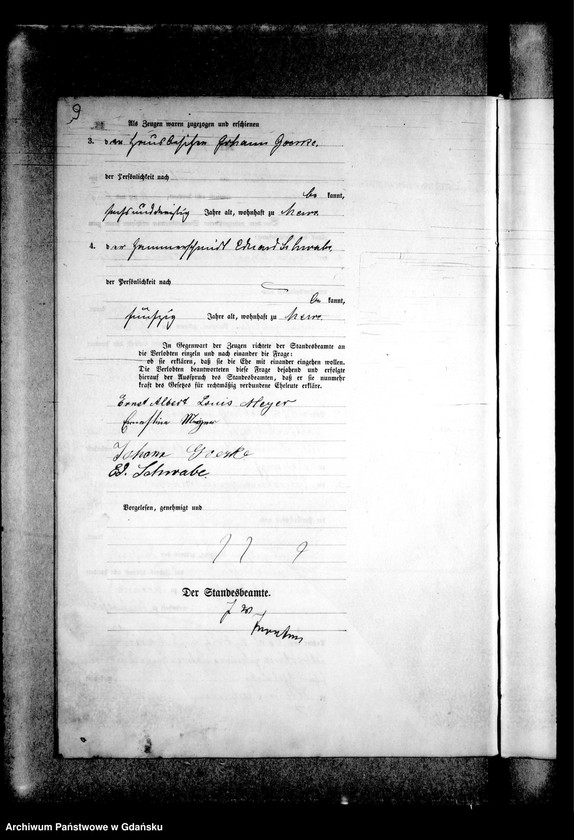 9
Als Zeugen waren zugezogen und erschienen
3. der Hausbesitzer Johann Goerke.
der Persönlichkeit nach
be kannt,
sechsunddreißig Jahre alt, wohnhaft zu Mewe.
4. der Hammerschmidt Eduard Schwabe
der Persönlichkeit nach
be kannt,
fünfzig Jahre alt, wohnhaft zu Mewe.
In Gegenwart der Zeugen richtete der Standesbeamte an
die Verlobten einzeln und nach einander die Frage:
ob sie erklären, daß sie die Ehe mit einander eingehen wollen.
Die Verlobten beantworteten diese Frage bejahend und erfolgte
hierauf der Ausspruch des Standesbeamten, daß er sie nunmehr
kraft des Gesetzes für rechtmäßig verbundene Eheleute erkläre.
Ernst Albert Louis Meyer
Ernestine Meyer
Johann Goerke
Ed. Schwabe.
Vorgelesen, genehmigt und
Der Standesbeamte.
Archiwum Państwowe w Gdańsku